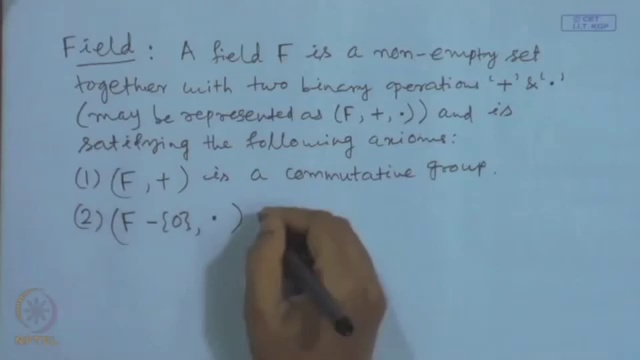 © CET
I.I.T. KGP
Field : A field F is a non-empty set
together with two binary operations '+' & '·'
(may be represented as (F, +, ·)) and is
satisfying the following axioms:
(1) (F, +) is a commutative group.
(2) (F - {0}, ·)
NPTEL